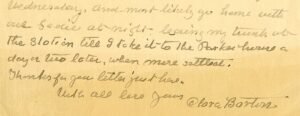 Wednesday, and most likely go home with
our Sadie at night - leaving my trunk at
the Station till I take it to the Parker house a
day or two later, when more settled.
Thanks for your letter just here.
With all love Yours
Clara Barton